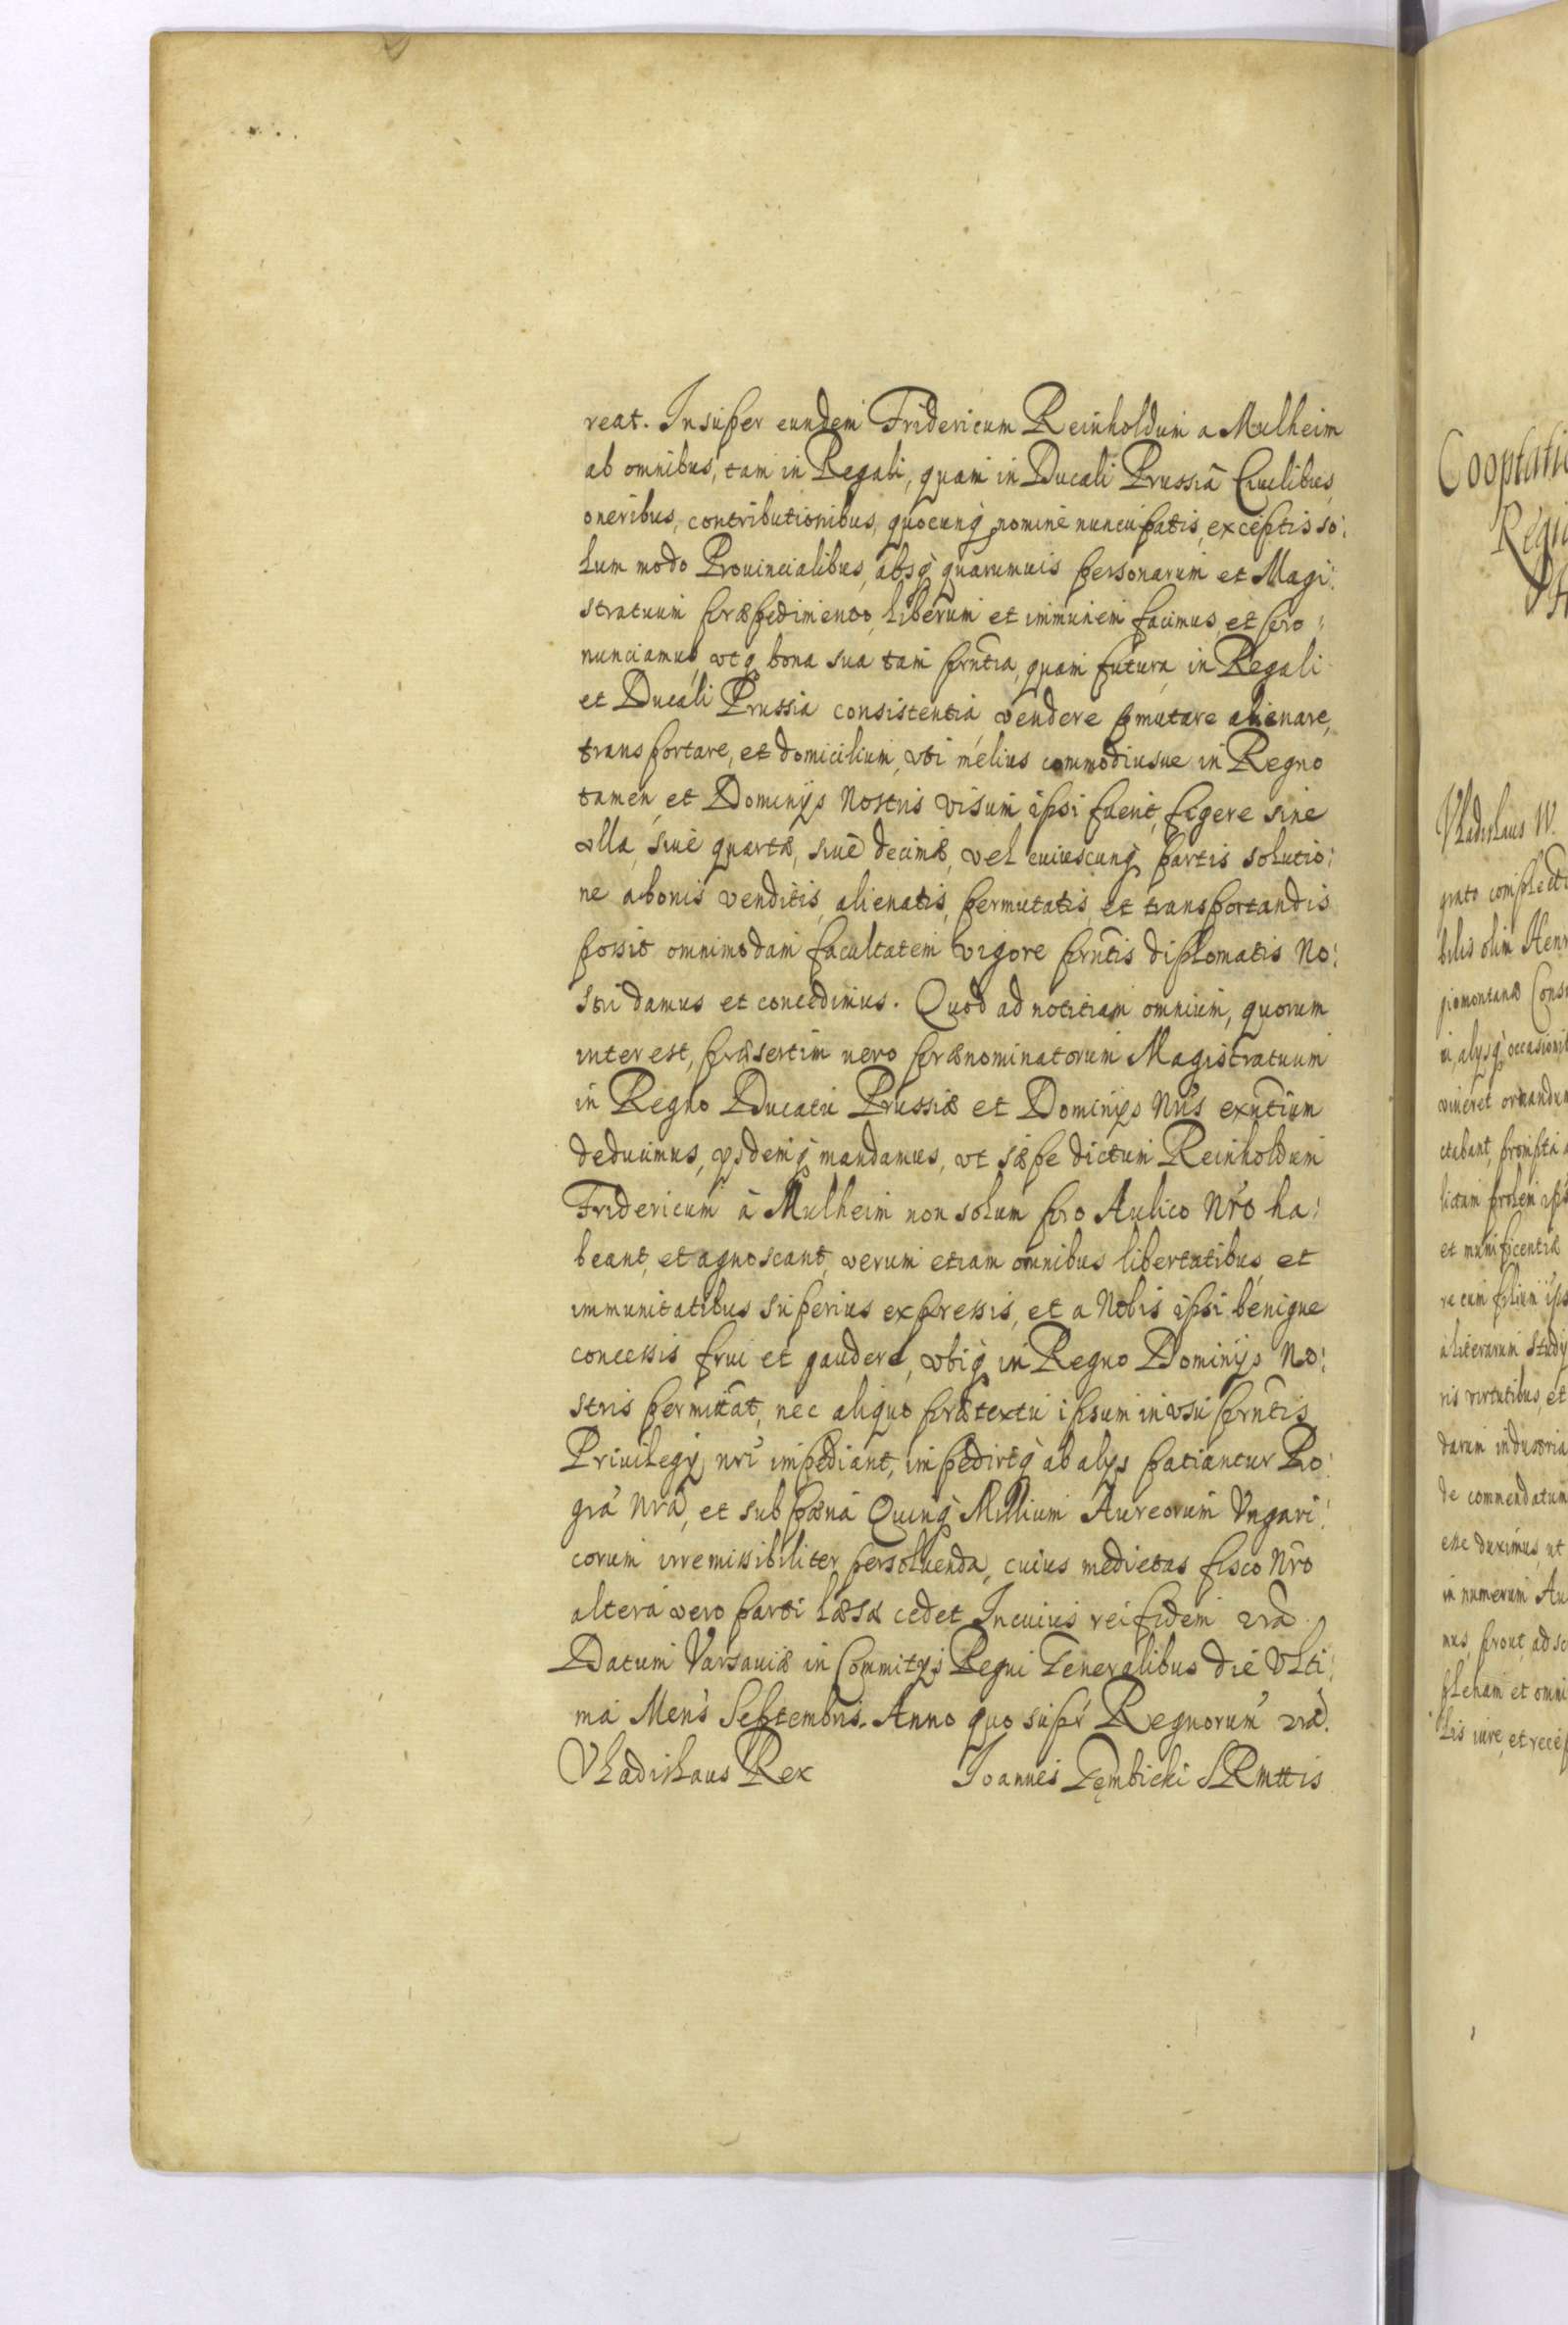 reat. Insuper eundem Fridericum Reinholdum a Mulheim
ab omnibus, tam in Regali, quam in Ducali Prussiâ Ciuilibus
oneribus, contributionibus, quocunq nomine nuncupatis, exceptis so:
lum modo Prouincialibus, absq quarumuis personarum et Magi:
stratuum præpedimento, liberum et immunem facimus, et pro:
nunciamus, vtq bona sua tam prntia, quam futura, in Regali
et Ducali Prussia consistentia, vendere pmutare alienare,
transportare, et domicilium, vbi melius commodiusue in Regno
tamen, et Dominijs Nostris visum ipsi fuerit, figere sine
vlla, siue quartæ, siue decimæ, vel cuiuscunq partis solutio:
ne a bonis venditis, alienatis, permutatis, et transportandis
possit omnimodam facultatem vigore prntis diplomatis No:
stri damus et concedimus. Quod ad notitiam omnium, quorum
interest, præsertim uero prænominatorum Magistratuum
in Regno Ducatu Prussiæ et Dominijs Nris exntium
deducimus, ysdemq mandamus, vt sæpe dictum Reinholdum
Fridericum à Mulheim non solum pro Aulico Nro ha:
beant, et agnoscant, verum etiam omnibus libertatibus, et
immunitatibus superius expressis, et a Nobis ipsi benigne
concessis frui et gaudere, vbiq in Regno Dominijs No:
stris permittat, nec aliquo prætextu ipsum in vsu prntis
Priuilegy nri impediant, impedireq ab alys patiantur Pro
gra nra, et sub pæna Quinq Millium Aureorum Vngari:
corum irremissibiliter persoluenda, cuius medietas fisco Nro
altera vero parti læsæ cedet In cuius rei fidem
Datum Varsauiæ in Commitys Regni Generalibus die Vlti:
ma Mens Septembris. Anno quo supr Regnorum
Vladislaus Rex Ioannes Gembicki SRMttis
Cooptati
Regi
Vladislaus IV.
grato complecti
bilis olim Henr
giomontanæ Cons
ui, alysq occasioni
viueret ornandu
ctabant, prompta
lictam prolem ips
et munificentiæ
re cum filium ips
a literarum study
ris virtutibus, et
darum industria
de commendatum
esse duximus ut
in numerum Au
mus, prout adsc
plenam et omni
lis iure, et recep